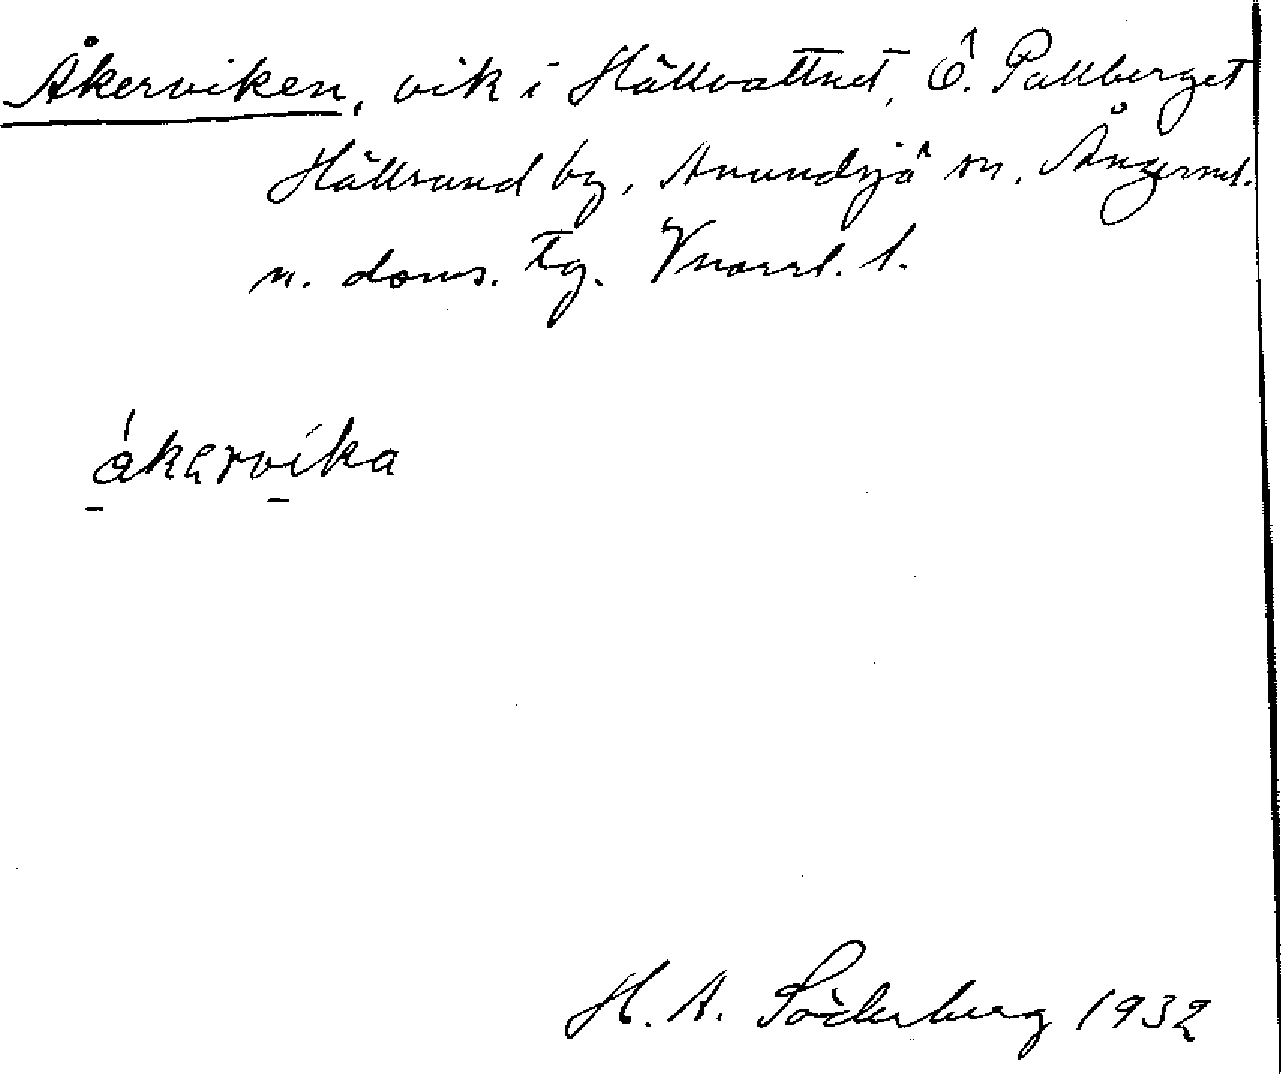 Åkerviken, vik i Hällvattnet, Ö. Pallberget
Hällsand by, Anundsjö sn, Ångerml.
n. doms. tg. Vnorrl. l.
åkervika
H. A. Söderberg 1932